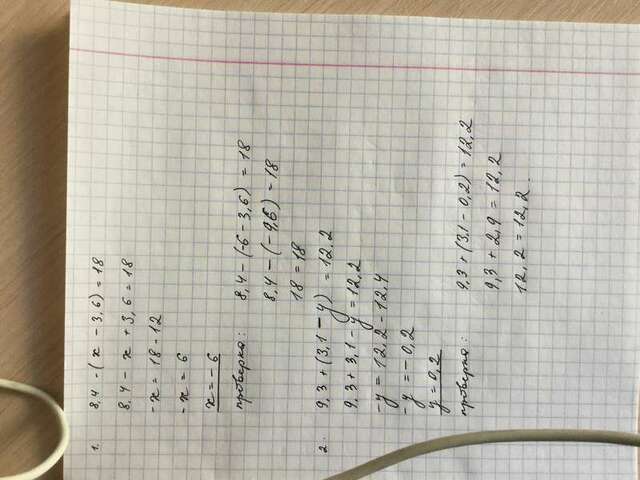 1. 8,4 - (x - 3,6) = 18
8,4 - x + 3,6 = 18
-x = 18 - 12
-x = 6
x = -6
проверка: 8,4 - (-6 - 3,6) = 18
8,4 - (-9,6) = 18
18 = 18
2. 9,3 + (3,1 - y) = 12,2
9,3 + 3,1 - y = 12,2
-y = 12,2 - 12,4
-y = -0,2
y = 0,2
проверка: 9,3 + (3,1 - 0,2) = 12,2
9,3 + 2,9 = 12,2
12,2 = 12,2.